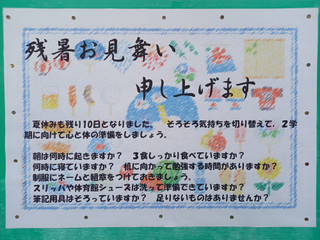 残暑お見舞い
申し上げます
夏休みも残り10日となりました。 そろそろ気持ちを切り替えて、2学
期に向けて心と体の準備をしましょう。
朝は何時に起きますか？ 3食しっかり食べていますか？
何時に寝ていますか？ 机に向かって勉強する時間がありますか？
制服にネームと組章をつけておきましょう。
スリッパや体育館シューズは洗って準備できていますか？
筆記用具はそろっていますか？ 足りないものはありませんか？